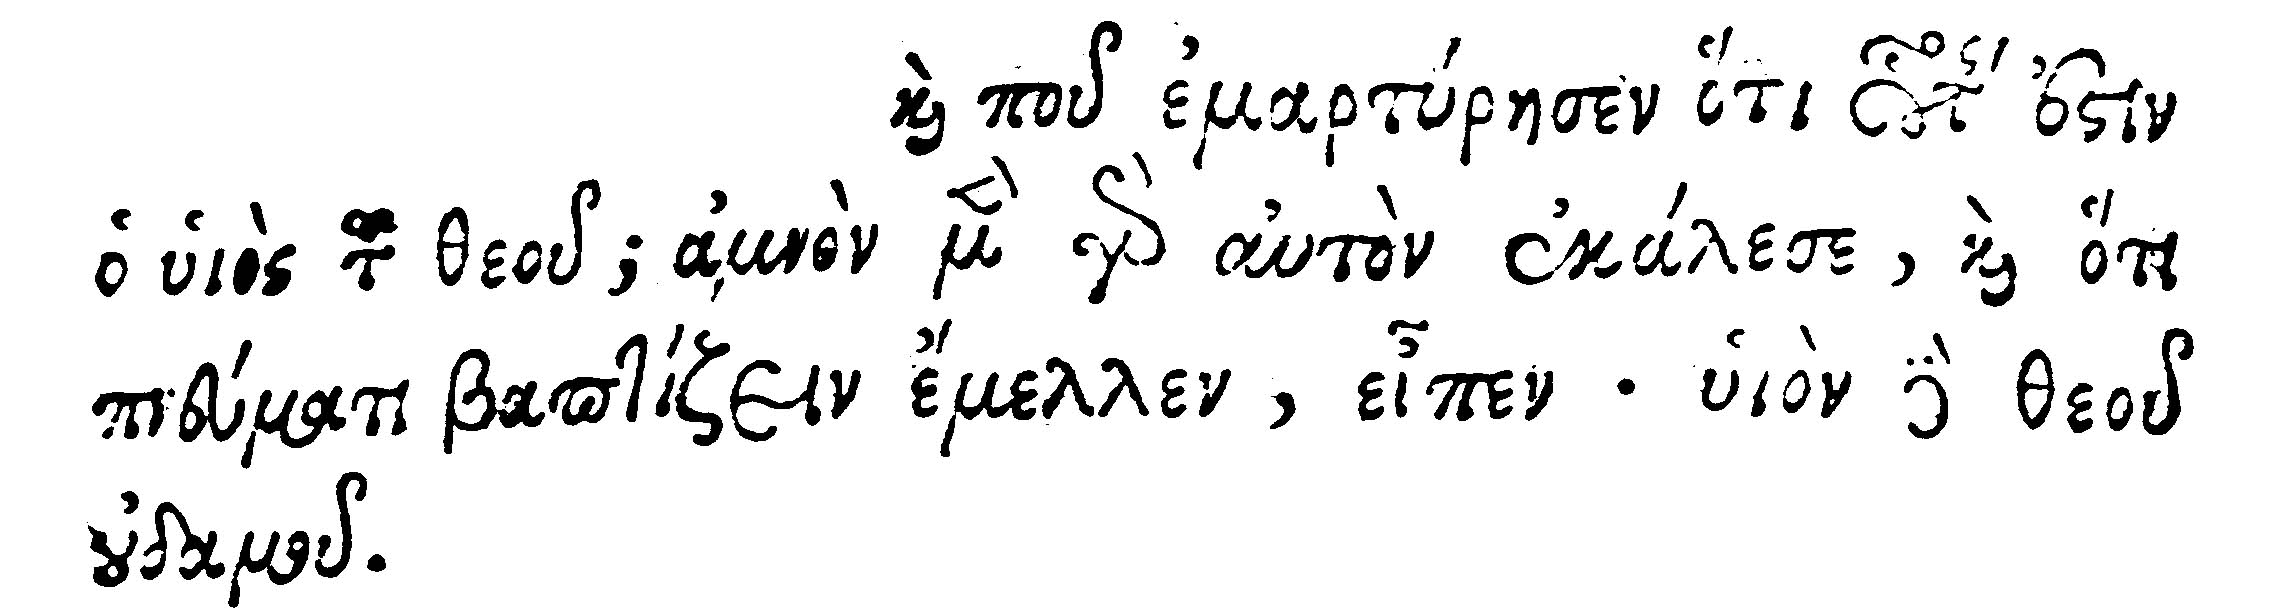 καὶ ποῦ ἐμαρτύρησεν ὅτι οὗτός ἐστιν
ὁ υἱὸς τοῦ θεοῦ; ἀμνὸν μὲν γὰρ αὐτὸν ἐκάλεσε, καὶ ὅτι
πνεύματι βαπτίζειν ἔμελλεν, εἶπεν · υἱὸν δὲ θεοῦ
οὐδαμοῦ.